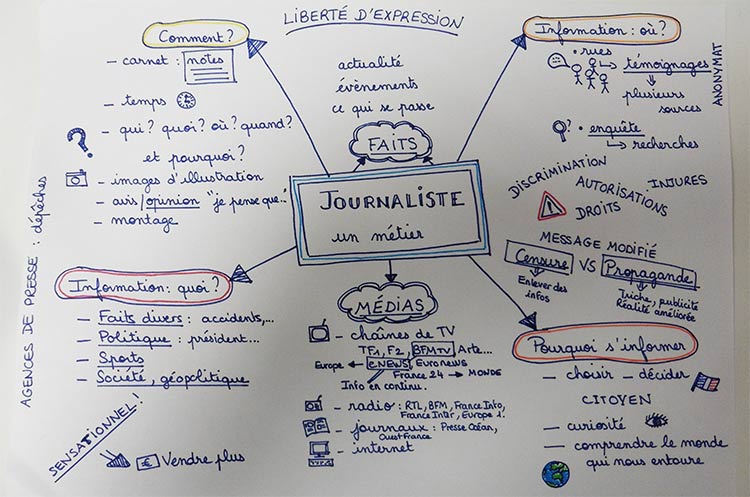 LIBERTÉ D'EXPRESSION
Comment?
- carnet : notes
- temps
- qui? quoi? où? quand?
et pourquoi?
- images d'illustration
- avis/opinion "je pense que.."
- montage
actualité
évènements
ce qui se passe
FAITS
JOURNALISTE
un métier
Information : où?
• rues
témoignages
plusieurs
sources
ANONYMAT
• enquête
recherches
DISCRIMINATION
AUTORISATIONS
INJURES
DROITS
MESSAGE MODIFIÉ
Censure VS Propagande
Enlever des
infos
Triche, publicité
Réalité améliorée
AGENCES DE PRESSE : dépêches
Information: quoi?
- Faits divers : accidents,...
- Politique : président...
- Sports
- Société, géopolitique
SENSATIONNEL!
€ Vendre plus
MÉDIAS
- chaînes de TV
TF1, F2, BFMTV Arte...
Europe ieNEWS Euronews
France 24 → MONDE
Info en continue.
- radio : RTL, BFM, France Info,
France Inter, Europe 1.
- journaux : Presse Océan,
Ouest France
- internet
Pourquoi s'informer
- choisir - décider
CITOYEN
- curiosité
- comprendre le monde
qui nous entoure